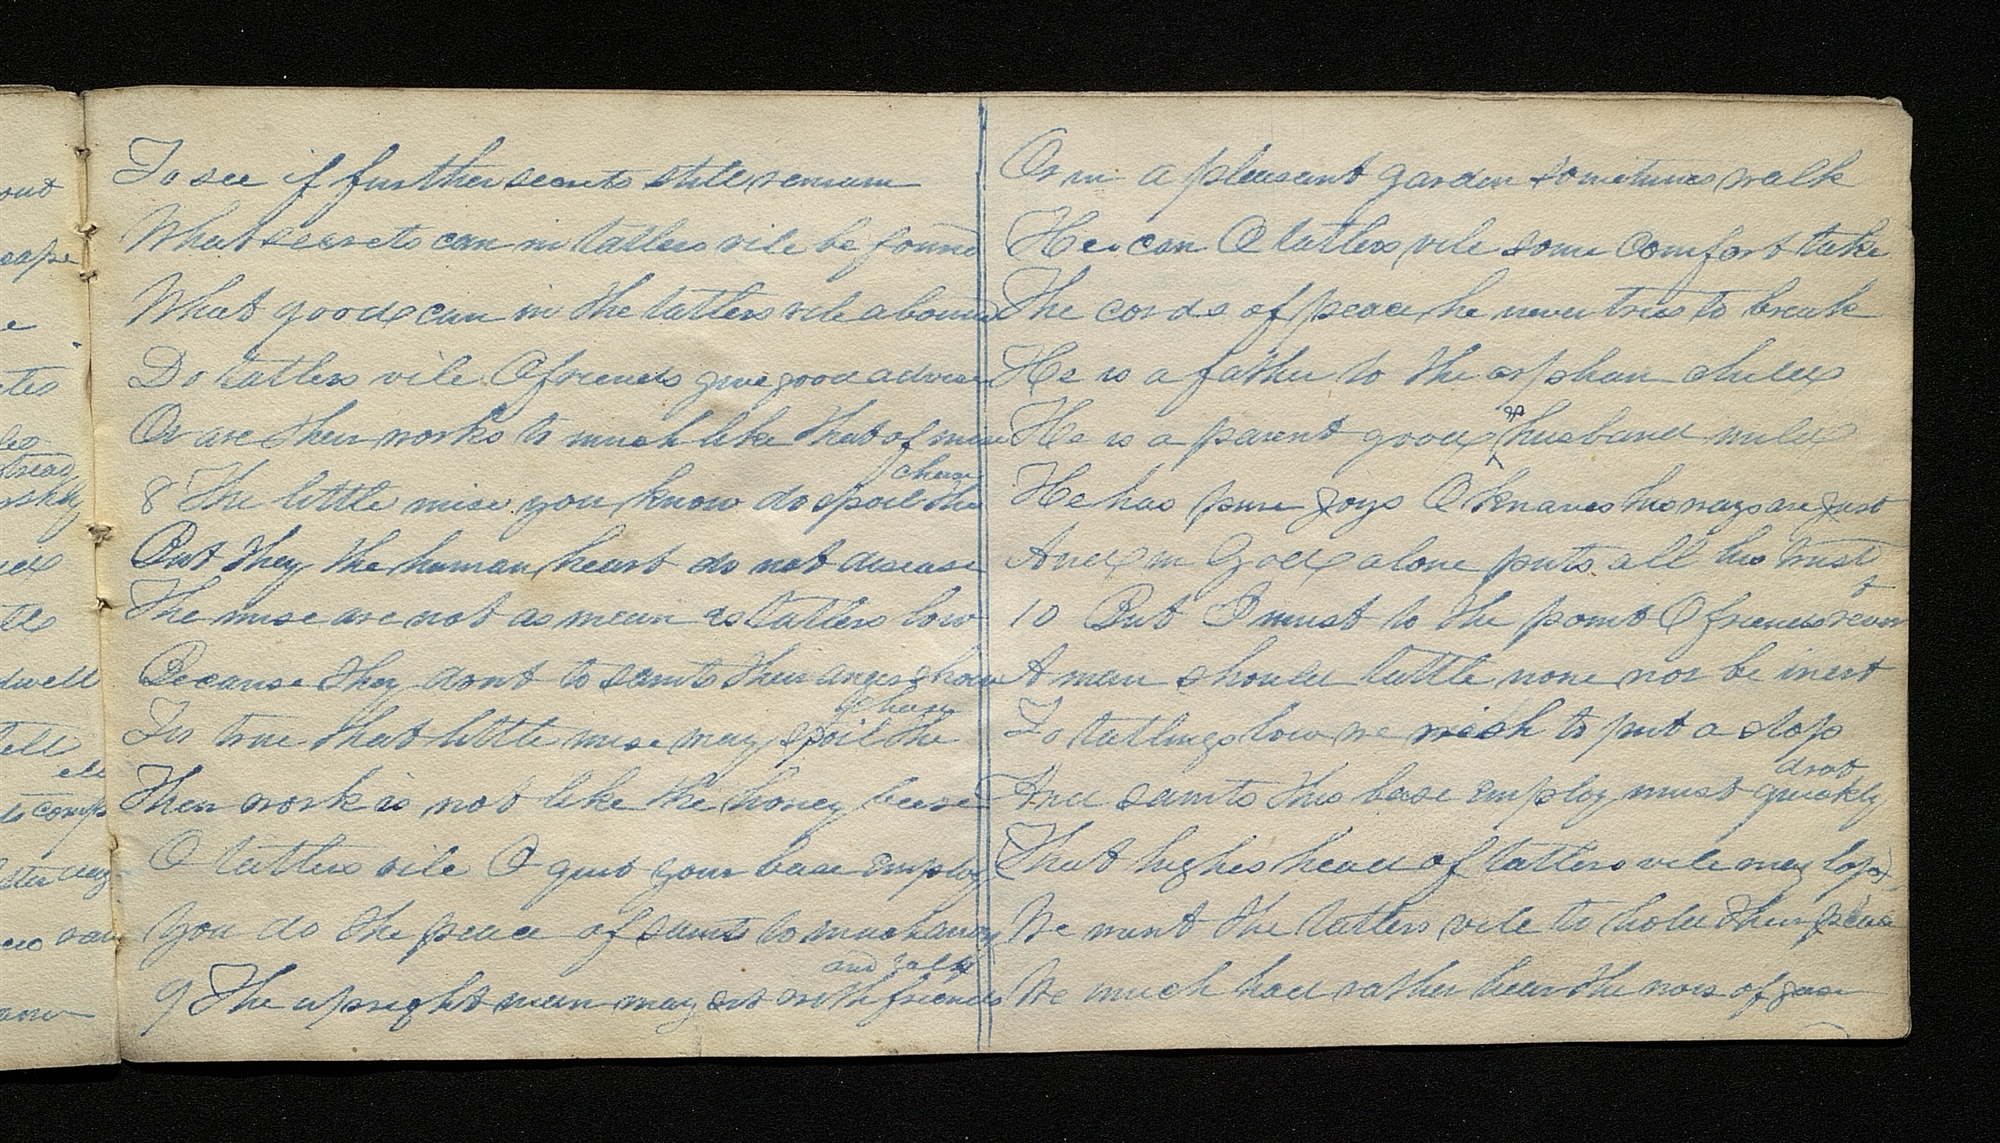 To see if further secrets still remain
What secrets can in tatlers vile be found
What good can in the tatlers vile abound
Do tatlers vile O friends give good advice
Or are their works to much like that of mise
8 The little mise you know do spoil the cheese
But they the human heart do not disease
The mise are not as mean as tatlers low
Because they dont to saints their anger show
Tis true that little mise may spoil the
Their work is not like the honey beese
O tatlers vile O quit your base employ
You do the peace of saints to much annoy
9 The upright man may sit with friends and talk
Or in a pleasant garden sometimes walk
He can O tatlers vile some comfort take
The cords of peace he never tries to break
He is a father to the orphan child
He is a parent good & husband mild
He has pure joys O knaves his ways are just
And in God alone puts all his trust
10 But I must to the point O friends revert
A man should tattle none nor be inert
To tatlings low we wish to put a stop
And saints this base employ must quickly drop
That highes head of tatlers vile may lop
We want the tatlers vile to hold their peace
We much had rather hear the nois of geese
out
eape
e
dwell
tell
to comp